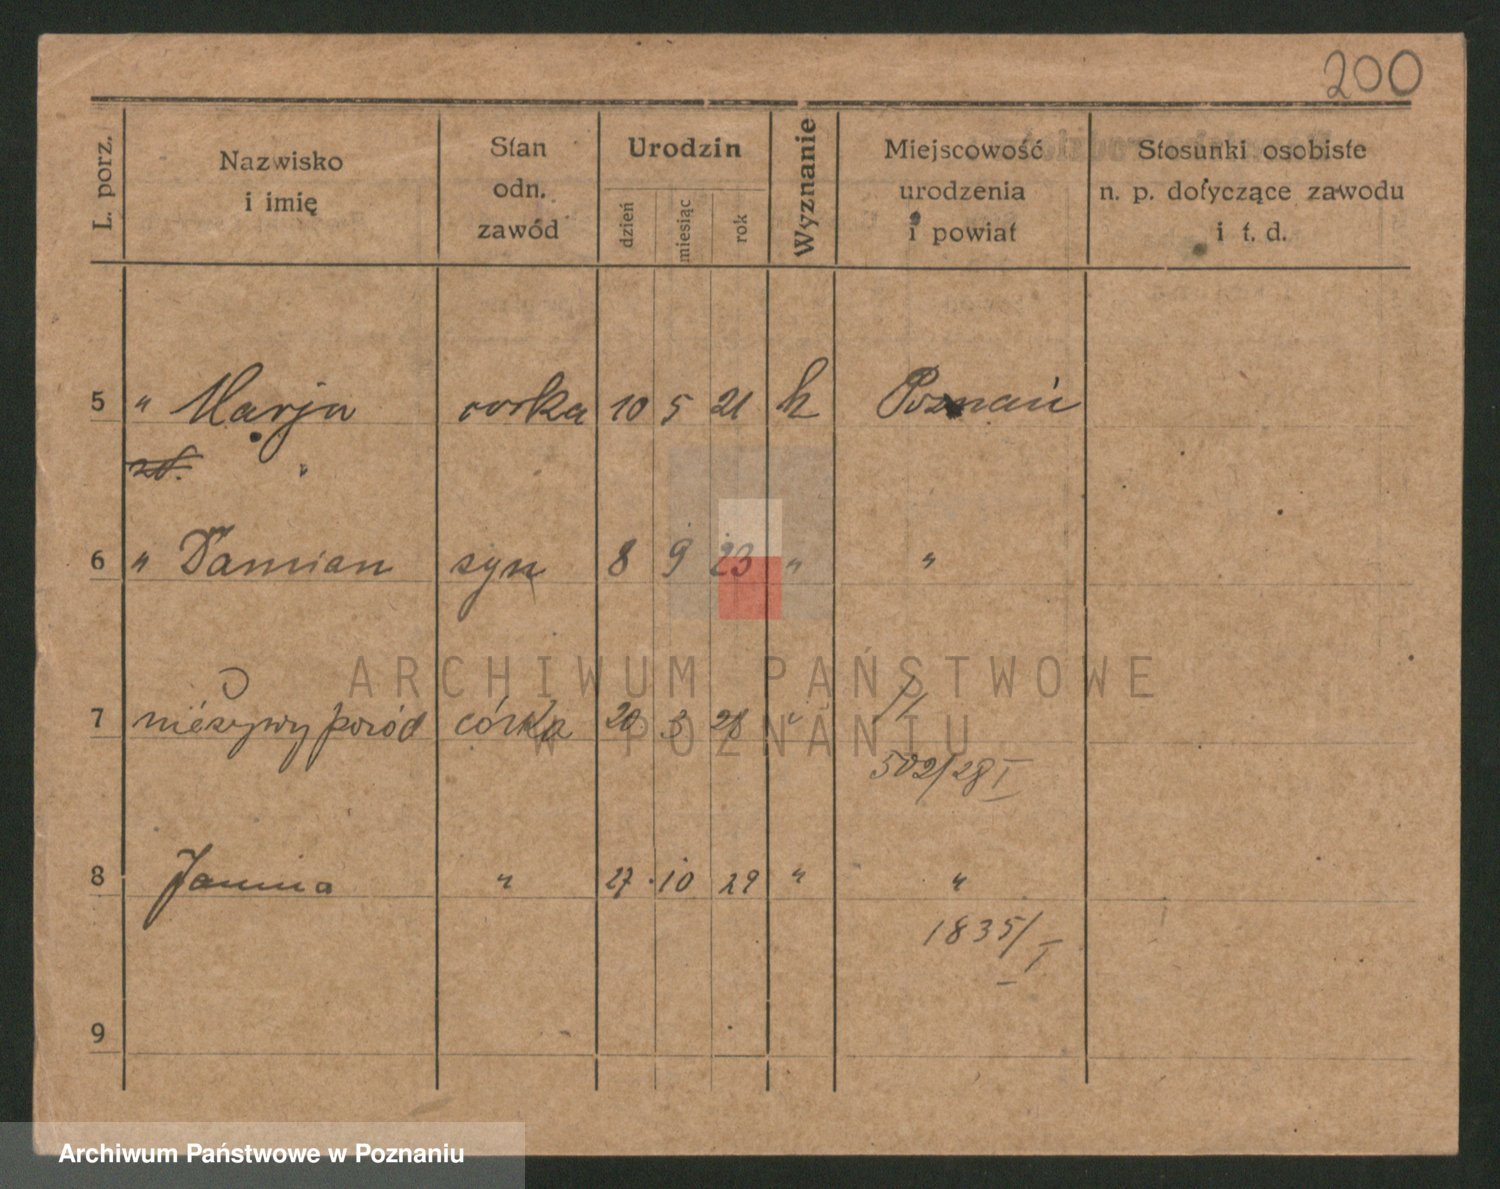 200
L. porz.
Nazwisko
i imię
Stan
odn.
zawód
Urodzin
dzień
miesiąc
rok
Wyznanie
Miejscowość
urodzenia
i powiat
Stosunki osobiste
n. p. dotyczące zawodu
i t. d.
5 " Marja córka 10 5 21 k Poznań
6 " Damian syn 8 9 23 " "
ARCHIWUM PAŃSTWOWE
W POZNANIU
7 nieżywy poród córka 20 3 28 "
502/28 I
8 Janina " 27 10 29 " "
1835/I
9
Archiwum Państwowe w Poznaniu